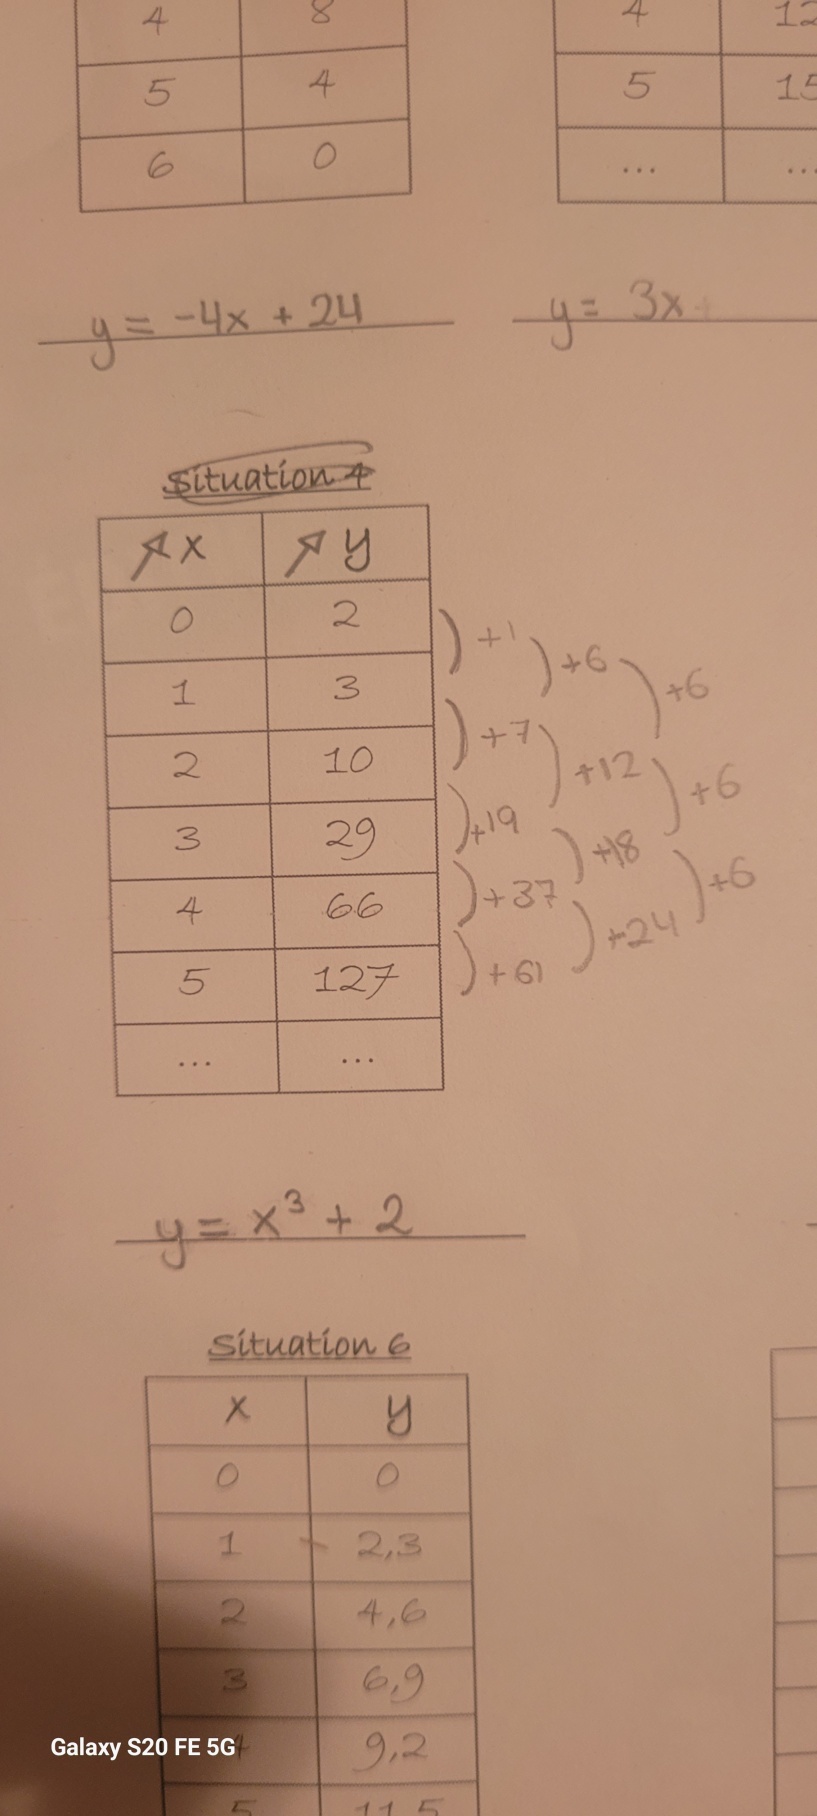 4 8
5 4
6 0
y = -4x + 24
4 12
5 15
... ...
y = 3x
Situation 4
x y
0 2
1 3
2 10
3 29
4 66
5 127
... ...
+1
+7
+19
+37
+61
+6
+12
+18
+24
+6
+6
+6
y = x³ + 2
Situation 6
x y
0 0
1 2,3
2 4,6
3 6,9
4 9,2
5 11,5
Galaxy S20 FE 5G